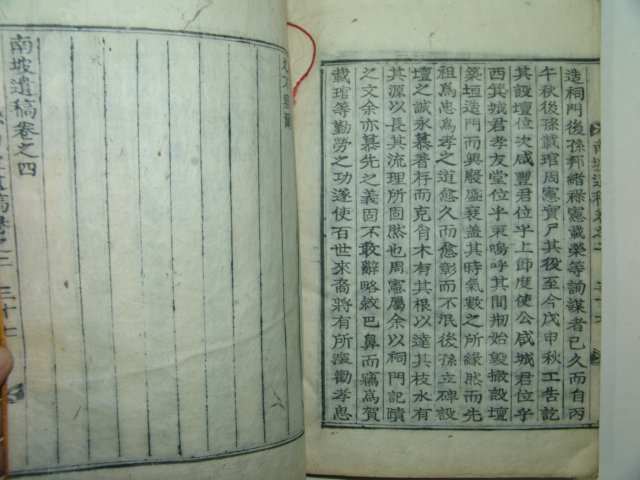 造祠門後孫邦緖祿憲載榮等詢謀者已久而自丙
午秋後孫載琯周憲實尸其役至今戊申秋工告訖
其設壇位次咸豐君位乎上節度使公咸城君位乎
西箕城君孝友堂位乎東嗚呼其間刱始毁撤設壇
築垣造門而興廢盛衰盖其時氣數之所緣然而先
祖爲忠爲孝之道愈久而愈彰而不泯後孫立碑設
壇之誠永慕著存而克肖木有其根以達其枝水有
其源以長其流理所固然也周憲屬余以祠門記蹟
之文余亦慕先之義固不敢辭略敘巴鼻而竊爲賀
載琯等勤勞之功遂使百世來裔將有所激勸孝思
南坡遺稿卷之四
三十七